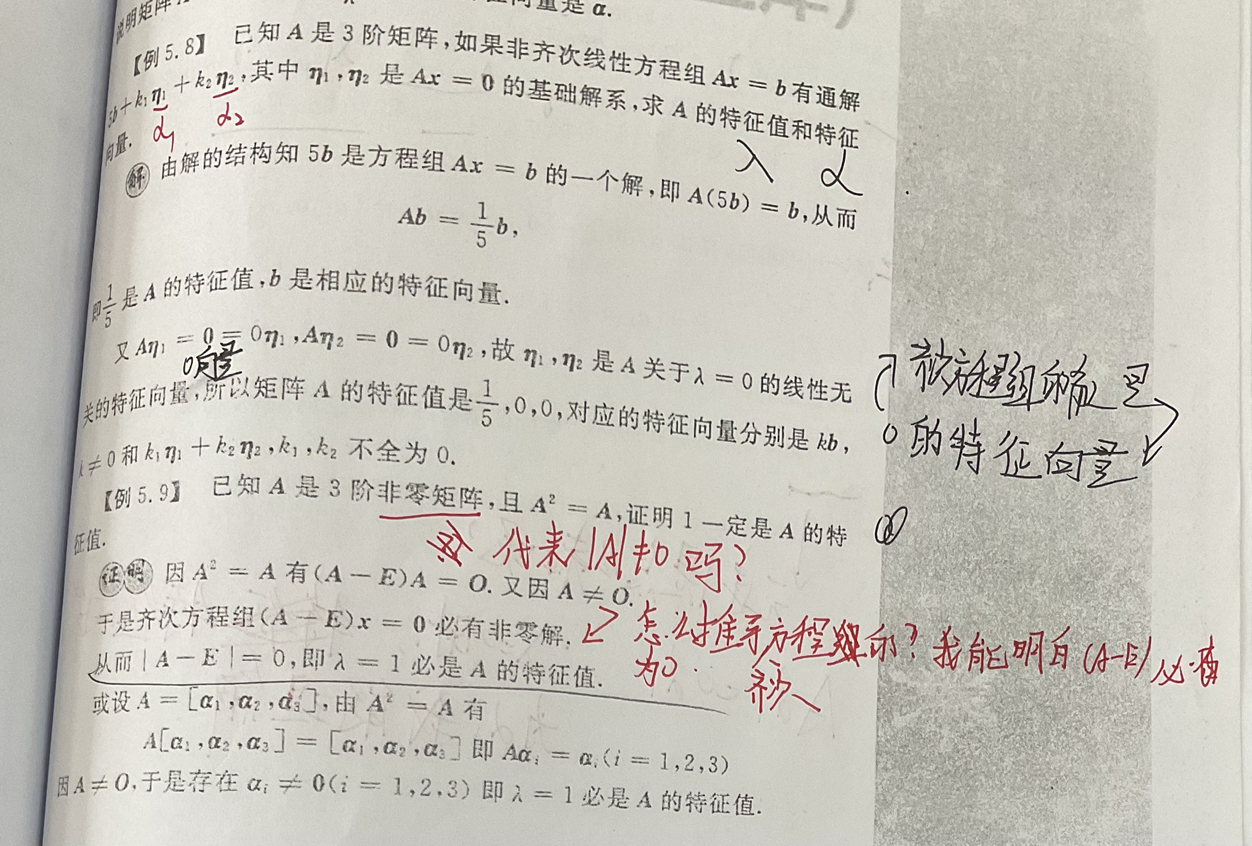 说明矩阵
向量是 α.
【例 5.8】 已知 A 是 3 阶矩阵,如果非齐次线性方程组 Ax = b 有通解
5b + k₁η₁ + k₂η₂,其中 η₁,η₂ 是 Ax = 0 的基础解系,求 A 的特征值和特征
α₁ α₂
向量.
λ α
解 由解的结构知 5b 是方程组 Ax = b 的一个解,即 A(5b) = b,从而
Ab = 1/5 b,
即 1/5 是 A 的特征值,b 是相应的特征向量.
又 Aη₁ = 0 = 0η₁,Aη₂ = 0 = 0η₂,故 η₁,η₂ 是 A 关于 λ = 0 的线性无
0向量
关的特征向量,所以矩阵 A 的特征值是 1/5,0,0,对应的特征向量分别是 kb,
k ≠ 0 和 k₁η₁ + k₂η₂,k₁,k₂ 不全为 0.
方程组的
0 的特征向量
【例 5.9】 已知 A 是 3 阶非零矩阵,且 A² = A,证明 1 一定是 A 的特
征值.
代表 |A|≠0 吗?
证明 因 A² = A 有(A − E)A = O. 又因 A ≠ O.
于是齐次方程组(A − E)x = 0 必有非零解.
怎么推导方程 的? 我能明白 (A-E) 必有
为0.
从而 | A − E | = 0,即 λ = 1 必是 A 的特征值.
或设 A = [α₁,α₂,α₃],由 A² = A 有
A[α₁,α₂,α₃] = [α₁,α₂,α₃] 即 Aαᵢ = αᵢ(i = 1,2,3)
因 A ≠ O,于是存在 αᵢ ≠ 0(i = 1,2,3) 即 λ = 1 必是 A 的特征值.